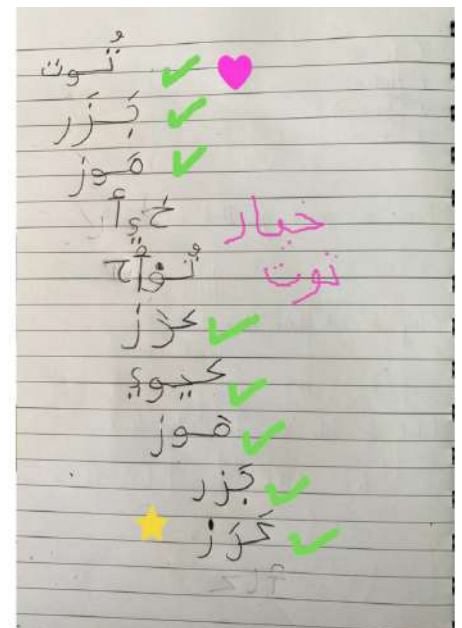 تُوت
جَزَر
مَوز
خيار
توت
كَرَز
كيوي
مَوز
جَزر
كَرَز